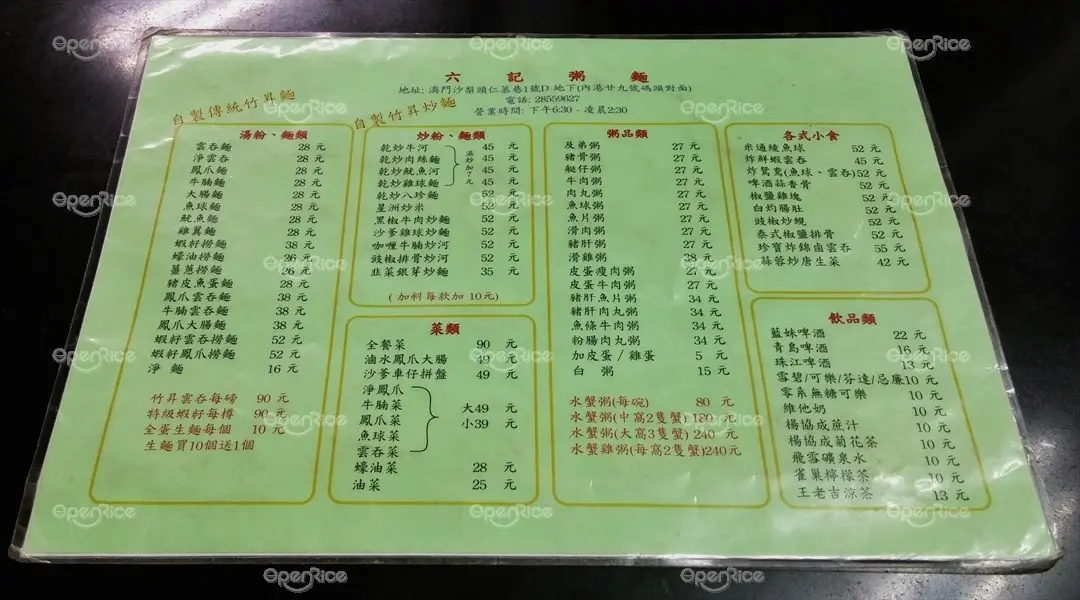 六記粥麵
地址: 澳門沙梨頭仁慕巷1號D 地下(內港廿九號碼頭對面)
電話: 28559627
營業時間: 下午6:30 - 凌晨2:30
自製傳統竹昇麵
湯粉、麵類
雲吞麵 28 元
淨雲吞 28 元
鳳爪麵 28 元
牛腩麵 28 元
大腸麵 28 元
魚球麵 28 元
魷魚麵 28 元
雞翼麵 28 元
蝦籽撈麵 38 元
蠔油撈麵 26 元
薑蔥撈麵 26 元
豬皮魚蛋麵 28 元
鳳爪雲吞麵 38 元
牛腩雲吞麵 38 元
鳳爪大腸麵 38 元
蝦籽雲吞撈麵 52 元
蝦籽鳳爪撈麵 52 元
淨 麵 16 元
竹昇雲吞每磅 90 元
特級蝦籽每樽 90 元
全蛋生麵每個 10 元
生麵買10個送1個
自製竹昇炒麵
炒粉、麵類
乾炒牛河 45 元
乾炒肉絲麵 45 元
乾炒魷魚河 45 元
乾炒雞球麵 45 元
濕炒加7元
乾炒八珍麵 52 元
星洲炒米 52 元
黑椒牛肉炒麵 52 元
沙爹雞球炒麵 52 元
咖喱牛腩炒河 52 元
豉椒排骨炒河 52 元
韭菜銀芽炒麵 35 元
( 加料每款加 10元)
菜類
全餐菜 90 元
滷水鳳爪大腸 49 元
沙爹車仔拼盤 49 元
淨鳳爪
牛腩菜 大49 元
鳳爪菜 小39 元
魚球菜
雲吞菜
蠔油菜 28 元
油菜 25 元
粥品類
及弟粥 27 元
豬骨粥 27 元
艇仔粥 27 元
牛肉粥 27 元
肉丸粥 27 元
魚球粥 27 元
魚片粥 27 元
滑肉粥 27 元
豬肝粥 27 元
滑雞粥 38 元
皮蛋瘦肉粥 27 元
皮蛋牛肉粥 27 元
豬肝魚片粥 34 元
豬肝肉丸粥 34 元
魚條牛肉粥 34 元
粉腸肉丸粥 34 元
加皮蛋 / 雞蛋 5 元
白 粥 15 元
水蟹粥(每碗) 80 元
水蟹粥(中窩2隻蟹) 180 元
水蟹粥(大窩3隻蟹) 240 元
水蟹雞粥(每窩2隻蟹)240元
各式小食
米通綾魚球 52 元
炸鮮蝦雲吞 45 元
炸鴛鴦(魚球、雲吞)52 元
啤酒蒜香骨 52 元
椒鹽雞塊 52 元
白灼腸肚 52 元
豉椒炒蜆 52 元
泰式椒鹽排骨 52 元
珍寶炸錦鹵雲吞 55 元
蒜蓉炒唐生菜 42 元
飲品類
藍妹啤酒 22 元
青島啤酒 16 元
珠江啤酒 13 元
雪碧/可樂/芬達/忌廉10 元
零系無糖可樂 10 元
維他奶 10 元
楊協成蔗汁 10 元
楊協成菊花茶 10 元
飛雪礦泉水 10 元
雀巢檸檬茶 10 元
王老吉涼茶 13 元